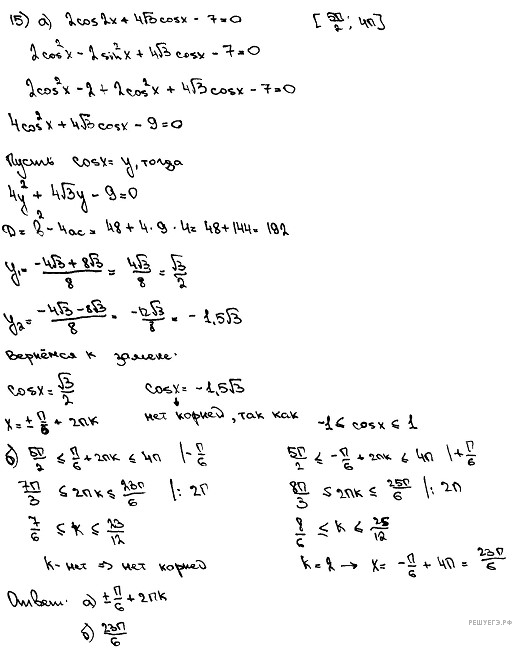 15) а) 2cos2x + 4√3 cosx - 7 = 0 [5π/2; 4π]
2cos²x - 2sin²x + 4√3 cosx - 7 = 0
2cos²x - 2 + 2cos²x + 4√3 cosx - 7 = 0
4cos²x + 4√3 cosx - 9 = 0
Пусть cosx = y, тогда
4y² + 4√3y - 9 = 0
D = b² - 4ac = 48 + 4·9·4 = 48 + 144 = 192
y₁ = (-4√3 + 8√3)/8 = 4√3/8 = √3/2
y₂ = (-4√3 - 8√3)/8 = -12√3/8 = -1,5√3
Вернёмся к замене:
cosx = √3/2 cosx = -1,5√3
x = ± π/6 + 2πk нет корней, так как -1 ≤ cosx ≤ 1
б) 5π/2 ≤ π/6 + 2πk ≤ 4π |-π/6 5π/2 ≤ -π/6 + 2πk ≤ 4π |+π/6
7π/3 ≤ 2πk ≤ 23π/6 |: 2π 8π/3 ≤ 2πk ≤ 25π/6 |: 2π
7/6 ≤ k ≤ 23/12 8/6 ≤ k ≤ 25/12
k - нет ⇒ нет корней k = 2 → x = -π/6 + 4π = 23π/6
Ответ: а) ± π/6 + 2πk
б) 23π/6
РЕШУЕГЭ.РФ